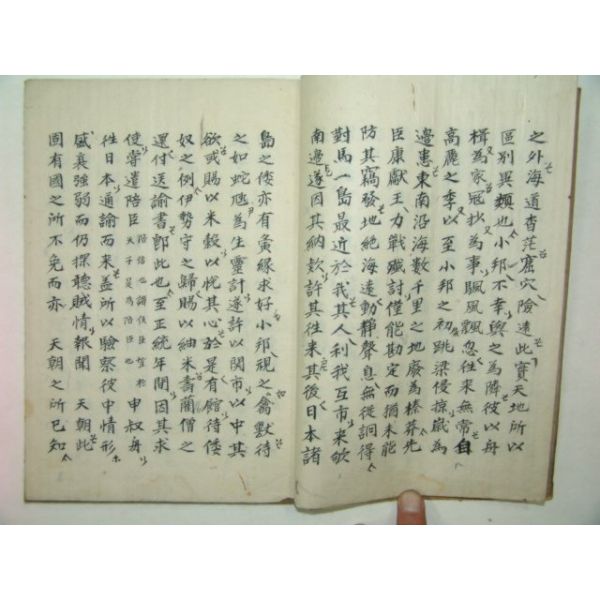 之外海道杳茫窟穴險遠此實天地所以
區別異類也小邦不幸與之為隣彼以舟
楫為家冠抄為事颿風飄忽往來無常自
高麗之季以至小邦之初跳梁侵掠歲為
邊患東南沿海數千里之地廢為榛莽先
臣康獻王力戰殲討僅能勘定而猶未能
防其竊發地絶海遠動靜聲息無從詗得
對馬一島最近於我其人利我互市來欵
南邊遂因其納欵許其徃来其後日本諸
島之倭亦有夤緣求好小邦視之禽獸待
之如蛇虺為生靈計遂許以関市以中其
欲或賜以米糓以恱其心於是有館待倭
奴之例伊勢守之歸賜以紬米壽藺僧之
還付送諭書卽此也至正統年間因其求
使嘗遣陪臣陪臣也諸侯臣望於天子是為陪臣也申叔舟
徃日本通諭而来盖所以驗察彼中情形
盛衰強弱而仍探聽賊情報聞 天朝此
固有國之所不免而亦 天朝之所已知